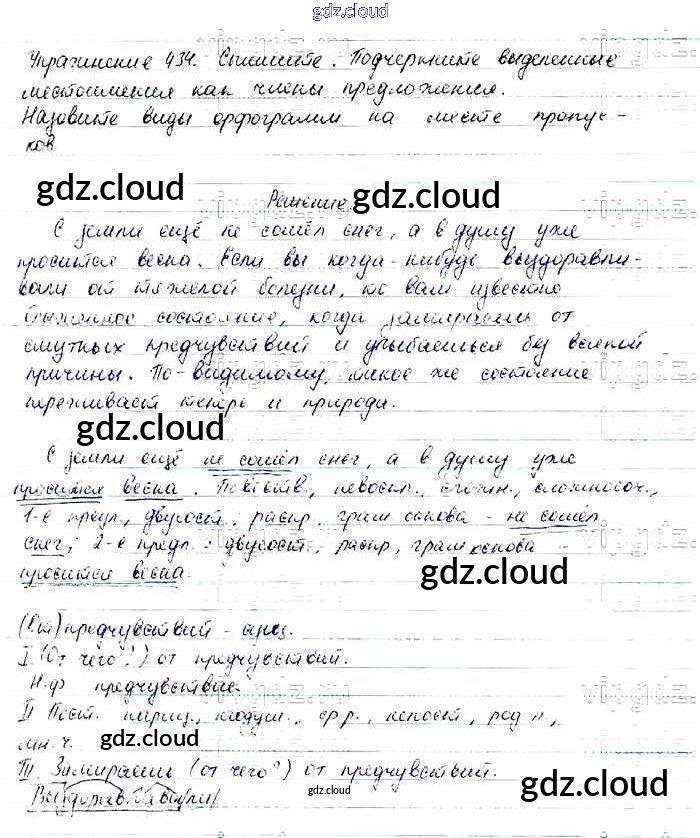 gdz.cloud
Упражнение 434. Спишите. Подчеркните выделенные
местоимения как члены предложения.
Назовите виды орфограмм на месте пропус-
ков
gdz.cloud
Решение
gdz.cloud
С земли ещё не сошёл снег, а в душу уже
просится весна. Если вы когда-нибудь выздоравли-
вали от тяжелой болезни, то вам известно
блаженное состояние, когда замираешь от
смутных предчувствий и улыбаешься без всякой
причины. По-видимому, такое же состояние
переживает теперь и природа.
gdz.cloud
С земли ещё не сошёл снег, а в душу уже
просится весна. Повеств., невоскл., сложн., сложносоч.,
1-е предл., двусост., распр., грам основа - не сошёл
снег; 2-е предл.: двусост., распр., грам основа
просится весна.
gdz.cloud
(От) предчувствий - сущ.
I. (От чего?) от предчувствий.
Н.ф предчувствие.
II Пост. нариц., неодуш., ср.р., непост, род п.,
мн. ч.
gdz.cloud
III. Замираешь (от чего?) от предчувствий.
gdz.cloud
gdz.cloud